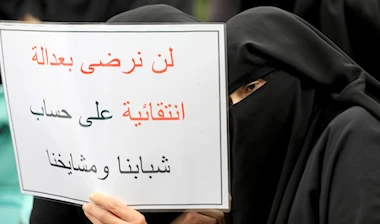 لن نرضى بعدالة
انتقائية على حساب
شبابنا ومشايخنا